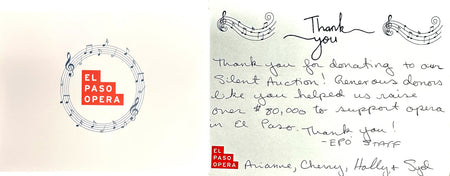 EL
PASO
OPERA
Thank
you
Thank you for donating to our
Silent Auction! Generous donors
like you helped us raise
over $80,000 to support opera
in El Paso. Thank you!
-EPO STAFF
EL
PASO
OPERA
Arianne, Cherry, Holly + Syd